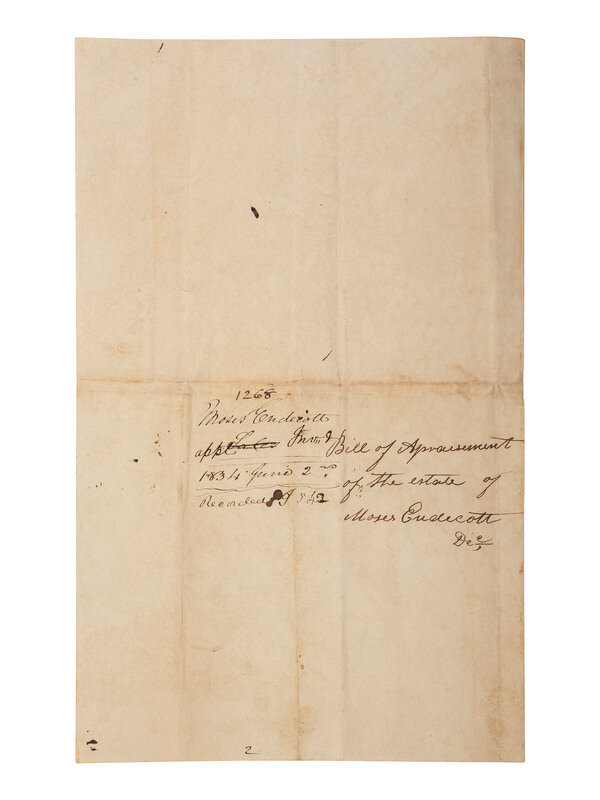 1268
Moses Endicott
appt Invd
1834 June 2nd
Recorded J 542
Bill of Apraisement
of the estate of
Moses Endecott
Dec
2